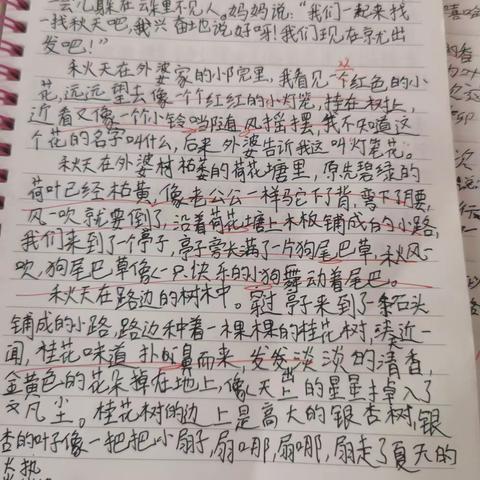 一会儿躲在云球里不见人。妈妈说:“我们一起来找
一找秋天吧,我兴奋地说好呀!我们现在就出
发吧!”
秋天在外婆家的小院里,我看见一个红色的小
花,远远望去像一个个红红的小灯笼,挂在树上,
近看又像一个个小铃当随风摇摆,我不知道这
个花的名字叫什么,后来外婆告诉我这叫灯笼花。
秋天在外婆村枯萎的荷花塘里,原先碧绿的
荷叶已经枯黄,像老公公一样驼下了背,弯下了腰,
风一吹就要倒了,沿着荷花塘上木板铺成的小路,
我们来到了一个亭子,亭子旁长满了一片狗尾巴草,秋风一
吹,狗尾巴草像一只快乐的小狗舞动着尾巴。
秋天在路边的树木中。穿过亭子来到了一条石头
铺成的小路,路边种着一棵棵的桂花树,凑近一
闻,桂花味道扑鼻而来,发出淡淡的清香,
金黄色的花朵掉在地上,像天上的星星掉入了
凡尘。桂花树的边上是高大的银杏树,银
杏的叶子像一把把小扇子,扇哪,扇哪,扇走了夏天的
炎热